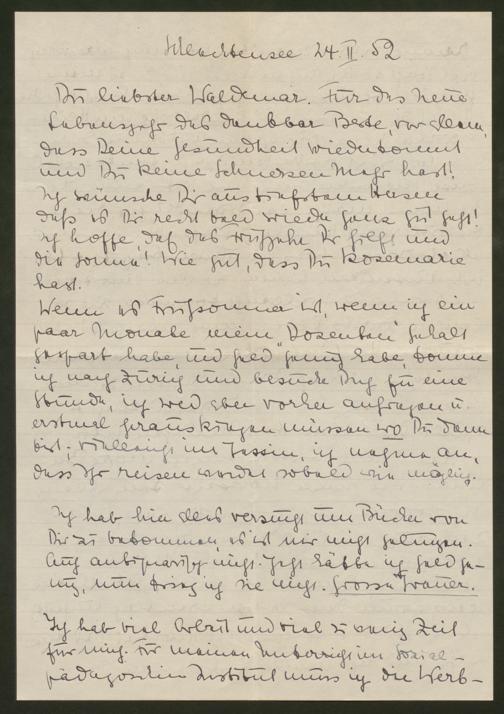 Schlachtensee 24.II.52
Du liebster Waldemar. Für das neue
Lebensjahr das denkbar Beste, vor allem,
dass Deine Gesundheit wiederkommt
und Du keine Schmerzen mehr hast!
Ich wünsche Dir aus tiefstem Herzen
daß es Dir recht bald wieder ganz gut geht!
Ich hoffe, daß das Frühjahr Dir hilft und
die Sonne! Wie gut, dass Du Rosemarie
hast.
Wenn es Frühsommer ist, wenn ich ein
paar Monate mein „Dozenten" Gehalt
gespart habe, und Geld genug habe, komme
ich nach Zürich und besuche Dich für eine
Stunde, ich werd aber vorher anfragen u.
erstmal herauskriegen müssen wo Du dann
bist, vielleicht im Tessin, ich nehme an,
dass Ihr reisen werdet sobald wie möglich.
Ich hab hier alles versucht um Bücher von
Dir zu bekommen, es ist mir nicht gelungen.
Auch antiquarisch nicht. Jetzt hätte ich Geld ge-
nug, nun krieg ich sie nicht. Grosse Trauer.
Ich hab viel Arbeit und viel zu wenig Zeit
für mich. Für meinen Unterricht im Sozial-
pädagogischen Institut muss ich die Werb-